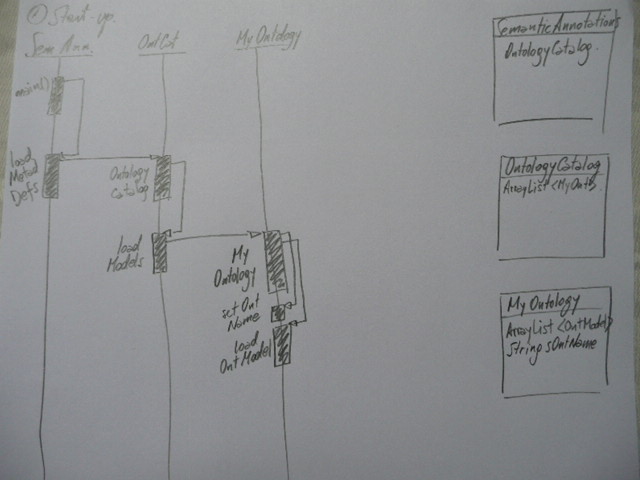 ① Start-up.
Sem Ann
OntCat
MyOntology
main()
load
Metad
Defs
Ontology
Catalog
load
Models
My
Ontology
set Ont
Name
load
Ont Model
SemanticAnnotations
OntologyCatalog.
OntologyCatalog
ArrayList <MyOnt>.
My Ontology
ArrayList <OntModel>
String sOntName